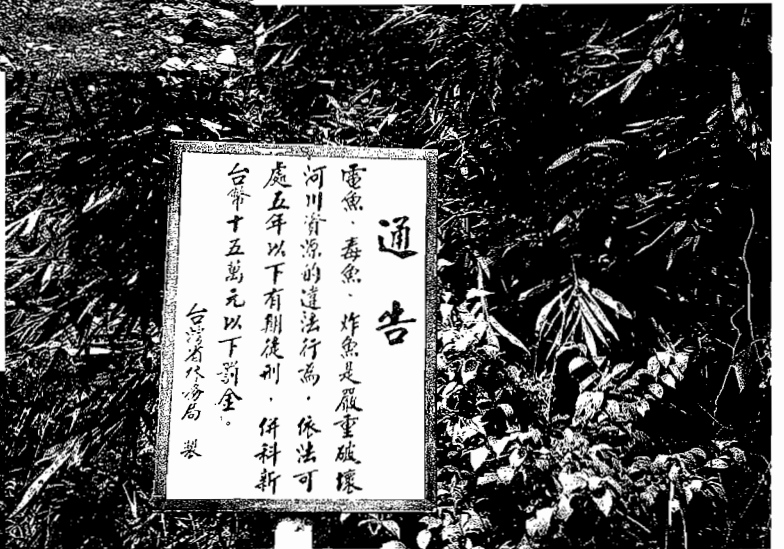 通告
電魚、毒魚、炸魚是嚴重破壞
河川資源的違法行為，依法可
處五年以下有期徒刑，併科新
台幣十五萬元以下罰金。
台灣省林務局 製